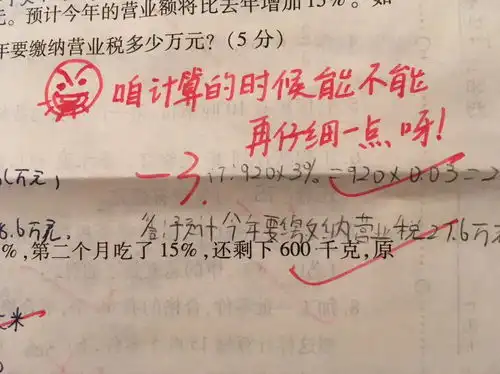 元。预计今年的营业额将比去年增加15%。如
年要缴纳营业税多少万元？（5分）
咱计算的时候能不能
再仔细一点呀！
万元，
-3.
920×3%=920×0.03=2
8.6万元。
答：预计今年要缴纳营业税27.6万
%，第二个月吃了15%，还剩下600千克，原
米